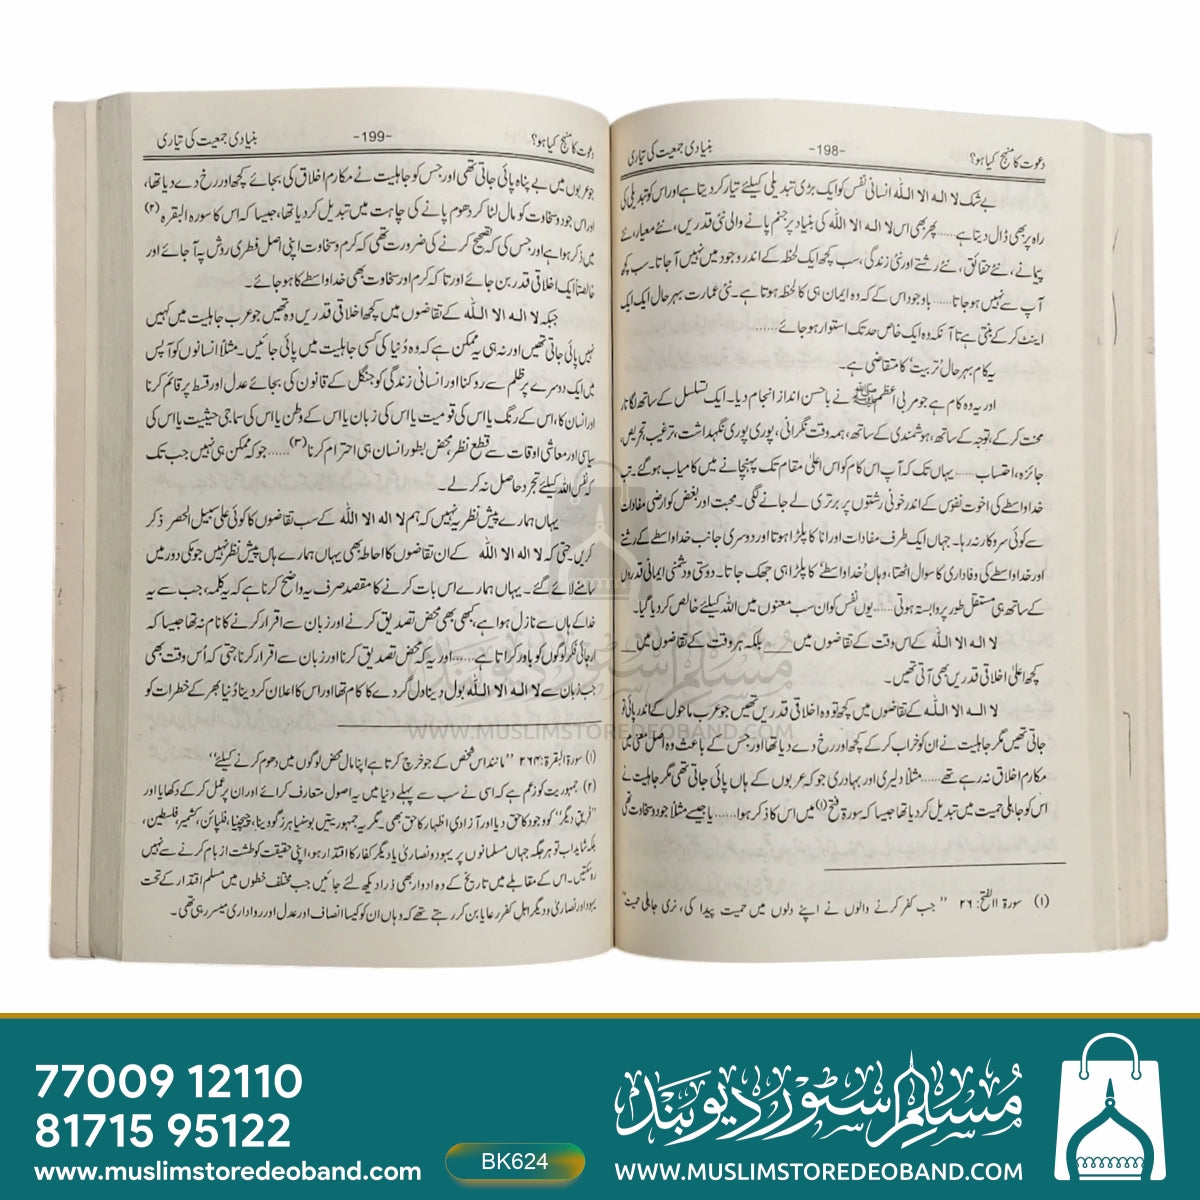 دعوت کا منہج کیا ہو؟ -198- بنیادی جمعیت کی تیاری
بے شک لا الہ الا اللہ انسانی نفس کو ایک بڑی تبدیلی کیلئے تیار کر دیتا ہے اور اس کو تبدیلی کی
راہ پر بھی ڈال دیتا ہے...... پھر بھی اس لا الہ الا اللہ کی بنیاد پر جنم پانے والی نئی قدریں، نئے معیار، نئے
پیمانے، نئے حقائق، نئے رشتے اور نئی زندگی، سب کچھ ایک لحظہ کے اندر وجود میں نہیں آجاتا۔ سب کچھ
آپ سے نہیں ہوجاتا...... باوجود اس کے کہ وہ ایمان ہی کا لحظہ ہوتا ہے۔ نئی عمارت بہرحال ایک ایک
اینٹ کرکے بنتی ہے تا آنکہ وہ ایک خاص حد تک استوار ہو جائے......
یہ کام بہرحال 'تربیت' کا متقاضی ہے۔
اور یہ وہ کام ہے جو مربی اعظم ﷺ نے باحسن انداز انجام دیا۔ ایک تسلسل کے ساتھ لگاتار
محنت کرکے، توجہ کے ساتھ، ہوشمندی کے ساتھ، ہمہ وقت نگرانی، پوری پوری نگہداشت، ترغیب، تحریص،
جائزہ، احتساب...... یہاں تک کہ آپ اس کام کو اس اعلیٰ مقام تک پہنچانے میں کامیاب ہوگئے۔ تب
خدا واسطے کی اخوت نفوس کے اندر خونی رشتوں پر برتری لے جانے لگی۔ محبت اور بغض کو ارضی مفادات
سے کوئی سروکار نہ رہا۔ جہاں ایک طرف مفادات اور انا کا پلڑا ہوتا اور دوسری جانب خدا واسطے کے رشتے
اور خدا واسطے کی وفاداری کا سوال اٹھتا، وہاں 'خدا واسطے' کا پلڑا ہی جھک جاتا۔ دوستی و دشمنی ایمانی قدروں
کے ساتھ ہی مستقل طور پر وابستہ ہوتی...... یوں نفس کو ان سب معنوں میں اللہ کیلئے خالص کر دیا گیا۔
لا الہ الا اللہ کے اس وقت کے تقاضوں میں ___ بلکہ ہر وقت کے تقاضوں میں __
کچھ اعلیٰ اخلاقی قدریں بھی آتی تھیں۔
لا الہ الا اللہ کے تقاضوں میں کچھ تو وہ اخلاقی قدریں تھیں جو عرب ماحول کے اندر پائی تو
جاتی تھیں مگر جاہلیت نے ان کو خراب کرکے کچھ اور رخ دے دیا تھا اور جس کے باعث وہ اصل معنی میں
مکارم اخلاق نہ رہے تھے...... مثلاً دلیری اور بہادری جو کہ عربوں کے ہاں پائی جاتی تھی مگر جاہلیت نے
اس کو جاہلی حمیت میں تبدیل کر دیا تھا جیسا کہ سورۃ فتح (۱) میں اس کا ذکر ہوا...... یا جیسے مثلاً جود و سخاوت تھی
(۱) سورۃ الفتح: ۲۶ "جب کفر کرنے والوں نے اپنے دلوں میں حمیت پیدا کی، نری جاہلی حمیت"
دعوت کا منہج کیا ہو؟ -199- بنیادی جمعیت کی تیاری
جو عربوں میں بے پناہ پائی جاتی تھی اور جس کو جاہلیت نے مکارم اخلاق کی بجائے کچھ اور رخ دے دیا تھا،
اور اس جود و سخاوت کو مال لٹا کر دھوم پانے کی چاہت میں تبدیل کر دیا تھا، جیسا کہ اس کا سورہ البقرہ (۲)
میں ذکر ہوا ہے اور جس کی کہ تصحیح کرنے کی ضرورت تھی کہ کرم و سخاوت اپنی اصل فطری روش پہ آجائے اور
خالصتاً ایک اخلاقی قدر بن جائے اور تا کہ کرم اور سخاوت بھی خدا واسطے کا ہو جائے۔
جبکہ لا الہ الا اللہ کے تقاضوں میں کچھ اخلاقی قدریں وہ تھیں جو عرب جاہلیت میں کہیں
نہیں پائی جاتی تھیں اور نہ ہی یہ ممکن ہے کہ وہ دُنیا کی کسی جاہلیت میں پائی جائیں۔ مثلاً انسانوں کو آپس
میں ایک دوسرے پر ظلم سے روکنا اور انسانی زندگی کو جنگل کے قانون کی بجائے عدل اور قسط پر قائم کرنا
اور انسان کا، اس کے رنگ یا اس کی قومیت یا اس کی زبان یا اس کے وطن یا اس کی سماجی حیثیت یا اس کی
سیاسی اور معاشی اوقات سے قطع نظر، محض بطور انسان ہی احترام کرنا (۳)...... جو کہ ممکن ہی نہیں جب تک
کہ نفس اللہ کیلئے تجرد حاصل نہ کر لے۔
یہاں ہمارے پیش نظر یہ نہیں کہ ہم لا الہ الا اللہ کے سب تقاضوں کا کوئی علی سبیل الحصر ذکر
کریں۔ حتی کہ لا الہ الا اللہ کے ان تقاضوں کا احاطہ بھی یہاں ہمارے ہاں پیش نظر نہیں جو مکی دور میں
سامنے لائے گئے۔ یہاں ہمارے اس بات کرنے کا مقصد صرف یہ واضح کرنا ہے کہ یہ کلمہ، جب سے یہ
خدا کے ہاں سے نازل ہوا ہے، کبھی بھی محض تصدیق کرنے اور زبان سے اقرار کرنے کا نام نہ تھا جیسا کہ
ارجائی فکر لوگوں کو باور کراتا ہے...... اور یہ کہ محض تصدیق کرنا اور زبان سے اقرار کرنا حتی کہ اُس وقت بھی
جب زبان سے لا الہ الا اللہ بول دینا دل گردے کا کام تھا اور اس کا اعلان کر دینا دُنیا بھر کے خطرات کو
(۱) سورۃ البقرۃ: ۲۶۴ "مانند اس شخص کے جو خرچ کرتا ہے اپنا مال محض لوگوں میں دھوم کرنے کیلئے"
(۲) جمہوریت کو زعم ہے کہ اسی نے سب سے پہلے دنیا میں یہ اصول متعارف کرائے اور ان پر عمل کرکے دکھایا اور
"فریق دیگر" کو وجود کا حق دیا اور آزادی اظہار کا حق بھی۔ مگر یہ جمہوریتیں بوسنیا ہرزگووینا، چیچنیا، فلپائن، کشمیر، فلسطین،
بلکہ شاید اب تو ہر جگہ جہاں مسلمانوں پر یہود و نصاریٰ یا دیگر کفار کا اقتدار ہو، اپنی حقیقت کو طشت از بام کرنے سے نہیں
رہ سکتیں۔ اس کے مقابلے میں تاریخ کے وہ ادوار بھی ذرا دیکھ لئے جائیں جب مختلف خطوں میں مسلم اقتدار کے تحت
یہود اور نصاریٰ و دیگر اہل کفر رعایا بن کر رہتے تھے کہ وہاں ان کو کیسا انصاف اور عدل اور رواداری میسر رہی تھی۔
مسلم سٹور دیوبند
WWW.MUSLIMSTOREDEOBAND.COM
77009 12110
81715 95122
www.muslimstoredeoband.com
BK624
مسلم سٹور دیوبند
WWW.MUSLIMSTOREDEOBAND.COM